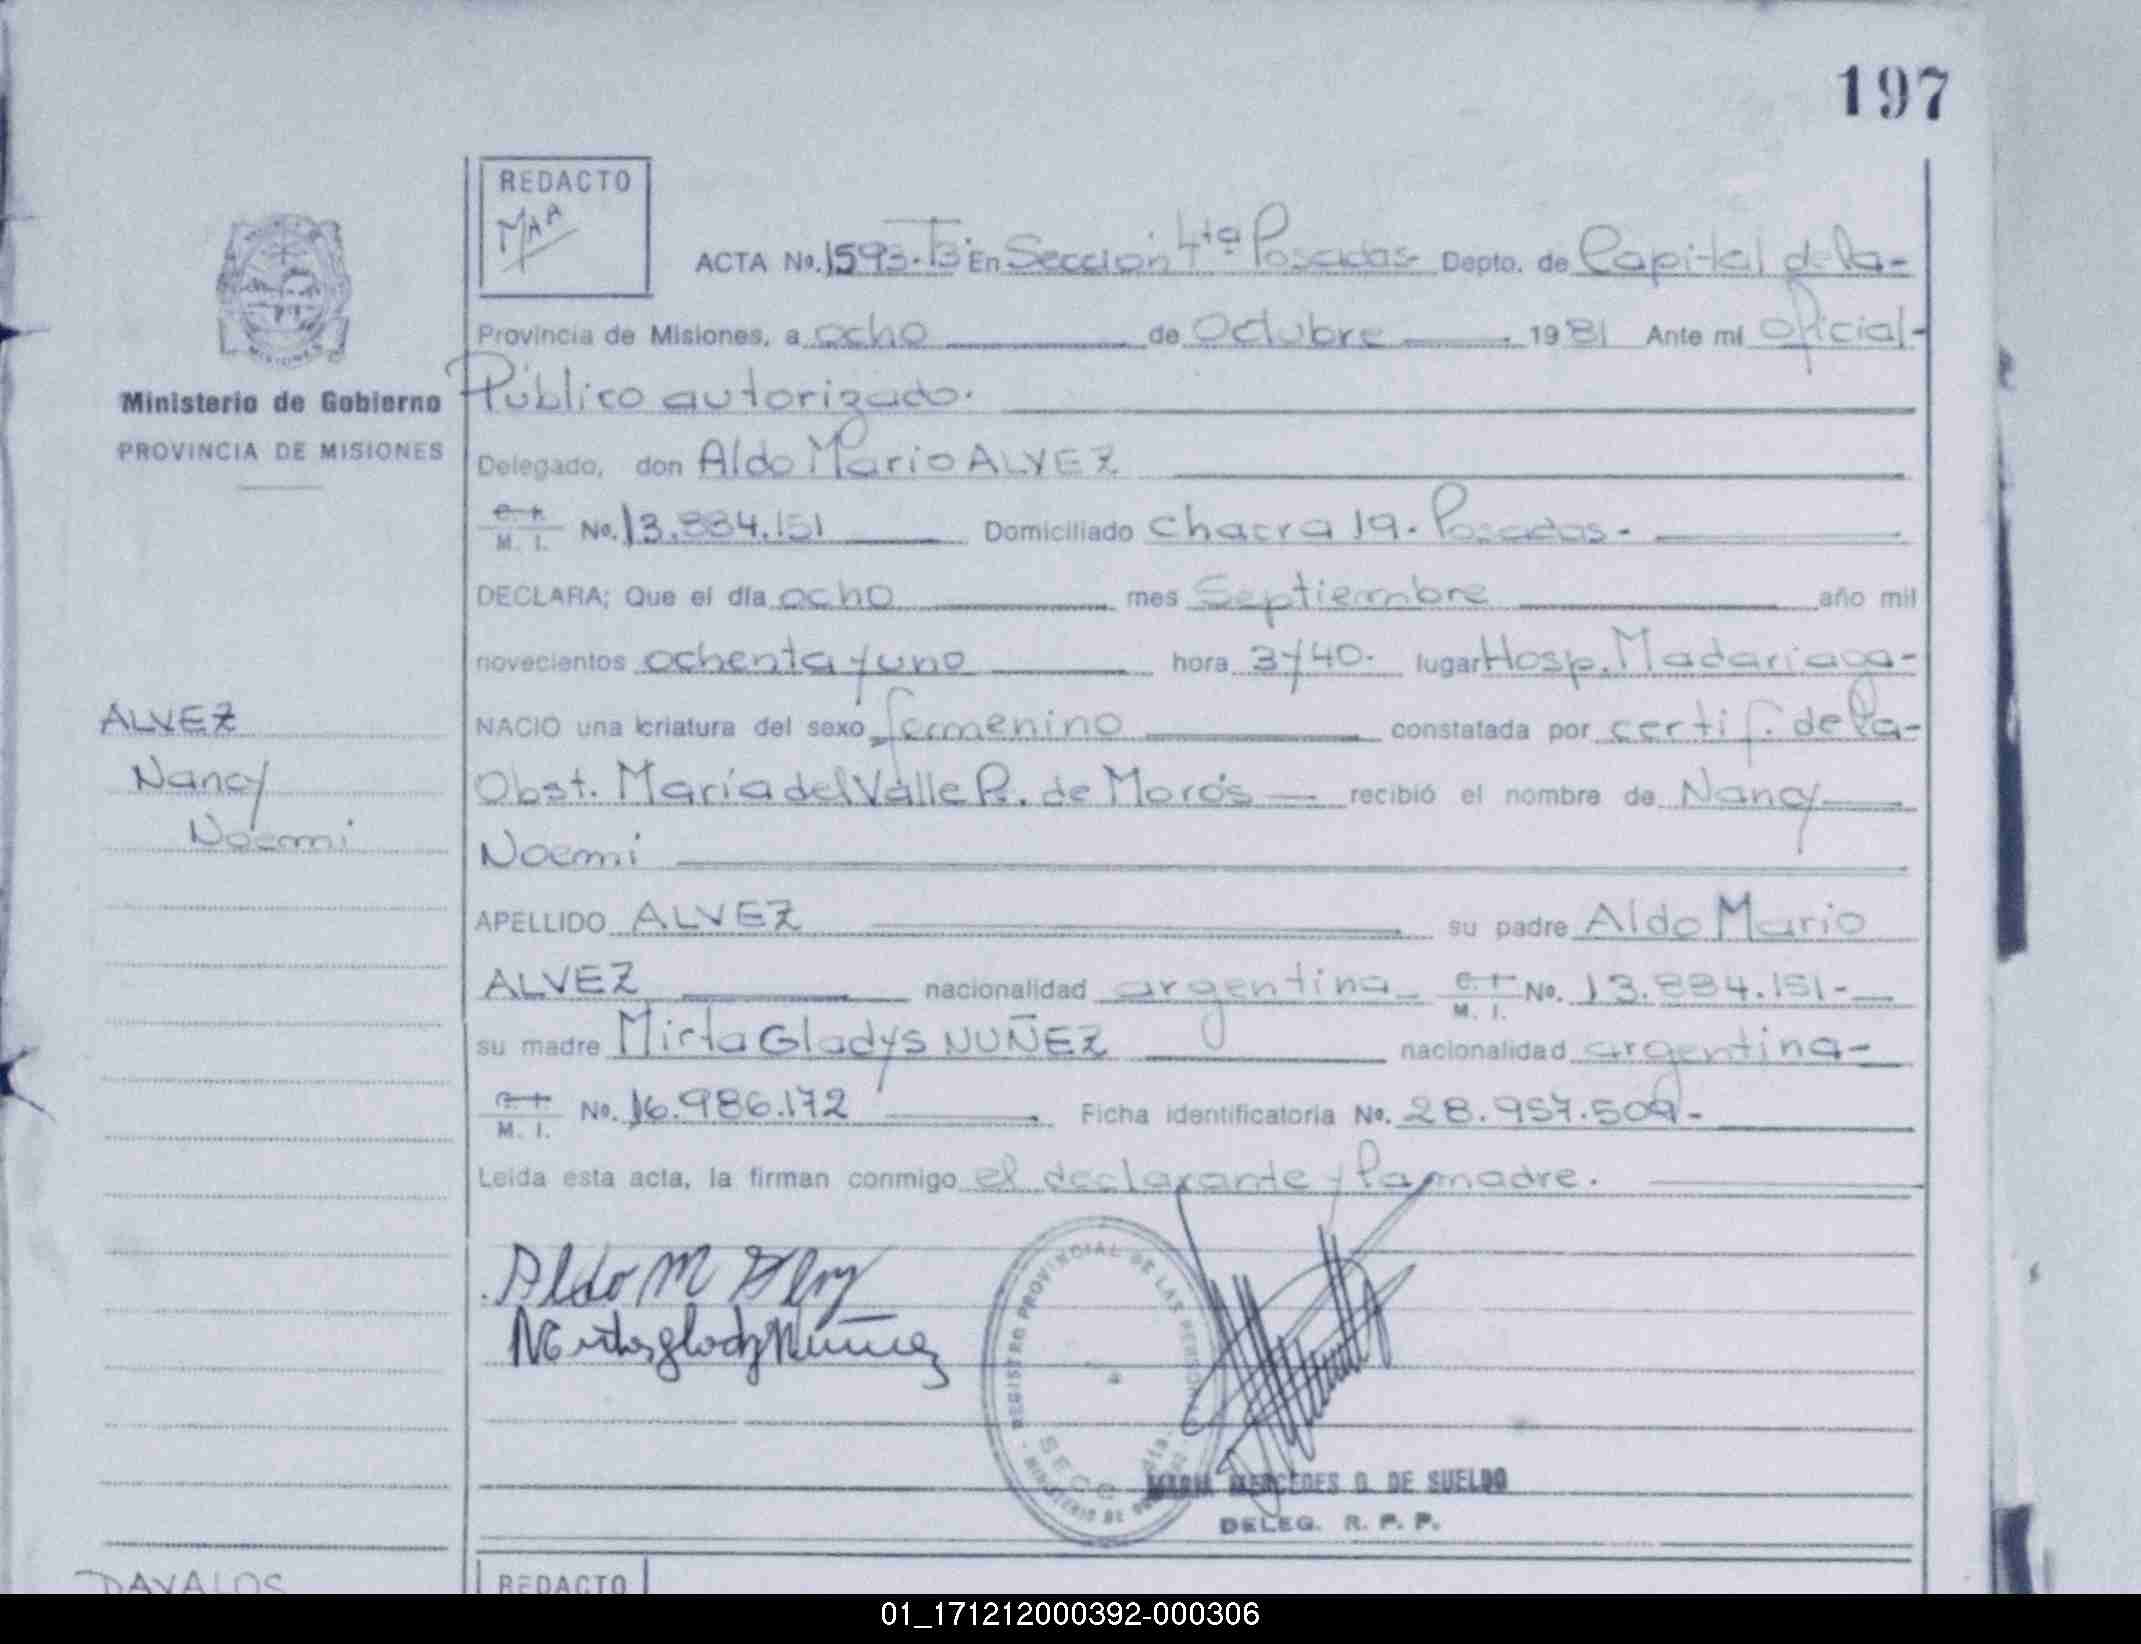 197
REDACTO
MAA
ACTA No. 1593. T3 En Sección 4ta Posadas- Depto. de Capital de la-
Provincia de Misiones, a ocho de Octubre 1981 Ante mí oficial-
Público autorizado.
Delegado, don Aldo Mario ALVEZ
M. I. No. 13.884.151 Domiciliado Chacra 19. Posadas-
DECLARA; Que el día ocho mes Septiembre año mil
novecientos ochenta y uno hora 3y40. lugar Hosp. Madariaga-
NACIO una criatura del sexo femenino constatada por certif. de la-
Obst. María del Valle R. de Morós recibió el nombre de Nancy
Noemi
APELLIDO ALVEZ su padre Aldo Mario
ALVEZ nacionalidad argentina C. I. M. I. No. 13.884.151-
su madre Mirta Gladys NUÑEZ nacionalidad argentina-
M. I. No. 16.986.172 Ficha identificatoria No. 28.957.509-
Leida esta acta, la firman conmigo el declarante y la madre.
MISIONES
Ministerio de Gobierno
PROVINCIA DE MISIONES
ALVEZ
Nancy
Noemi
Aldo M
Mirta glady Nuñez
REGISTRO PROVINCIAL DE LAS
SECC 4ta.
MINISTERIO DE
MARIA MERCEDES G. DE SUELDO
DELEG. R. P. P.
DAVALOS
REDACTO
01_171212000392-000306